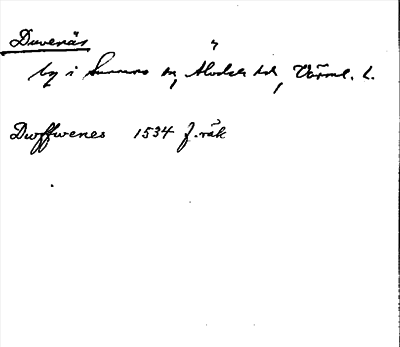 Duvenäs
by i Sunnemo sn, Älvdals hd, Värml. l.
Duffwenes 1534 f.räk